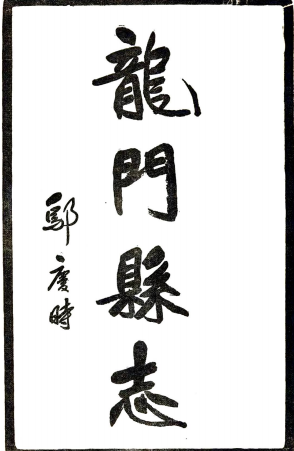 龍門縣志
鄔慶時